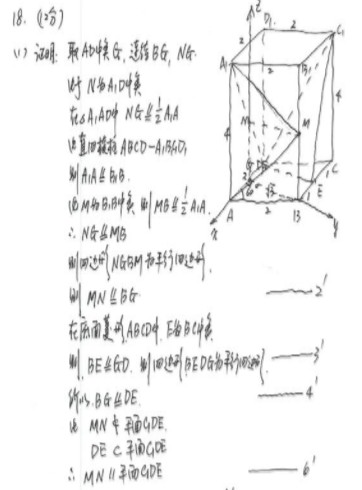 18. (12分)
(1) 证明: 取AD中点G, 连结BG, NG.
由于N为A₁D中点
在△A₁AD中 NG∥=½A₁A
由直四棱柱ABCD-A₁B₁C₁D₁
则A₁A∥=B₁B.
由M为B₁B中点 则MB∥=½A₁A.
∴ NG∥=MB
则四边形NGBM为平行四边形.
则 MN∥=BG ——2'
在底面菱形ABCD中, E为BC中点
则 BE∥=GD. 则四边形BEDG为平行四边形. ——3'
所以 BG∥=DE. ——4'
由 MN⊄平面C₁DE
DE⊂平面C₁DE
∴ MN∥平面C₁DE ——6'
z
D₁
2
C₁
A₁
2
B₁
4
4
4
N
M
G
D
C
E
A
2
B
x
y